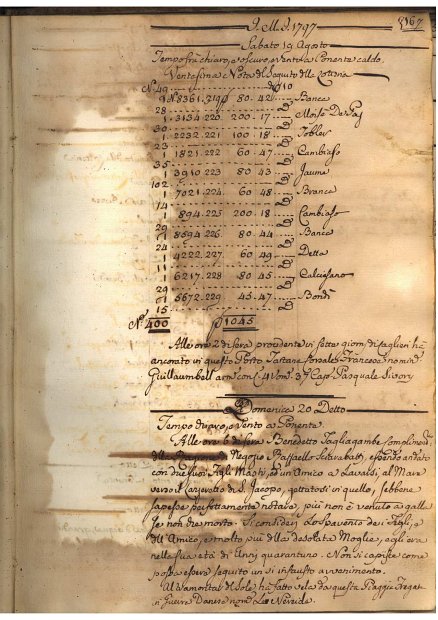 J. M. J. 1797
8167
Sabato 19 Agosto
Tempo fra chiaro, e oscuro, e Vento a Ponente caldo.
Ventesima Nota del Seguito della Lotteria
N. 49
1 N. 8361.219 80.42 Banca
28
1 3134.220 200.17 Moise De Paz
30
1 2232.221 100.18 Tobler
23
1 1821.222 60.47 Cambiaso
35
1 3910.223 80.43 Jaume
102
1 7021.224 60.48 Branca
14
1 894.225 200.18 Cambiaso
29
1 8594.226 80.44 Banca
24
1 4222.227 60.49 Detta
11
1 6217.228 80.45
29
1 5672.229 45.47 Bondi
15
N. 400 1045
Alle ore 23 di sera providente in sette giorni di Cagliari ha
ancorato in questo Porto Tartana Francese nominata
Guillaumbell con 4 37 Cap. Pasquale
Domenica 20 Detto
Tempo chiaro, e Vento a Ponente.
Alle ore 6 di sera Benedetto Tagliagambe
Negozio Raffaello essendo andato
con due suoi Figli Maschi, ed un Amico a Lavarsi, al Mare
verso il Lazzeretto di S. Jacopo, gettatosi in quello, sebbene
sapesse perfettamente notare, più non è venuto a galla
se non che morto. Si consideri Lo spavento dei Figli, e
dell'Amico, e molto più della desolata Moglie, egli era
nella sua età di Anni quarantuno. Non si capisce come
possa essere seguito un sì infausto avvenimento.
Al tramontar del Sole ha fatto vela da questa Piaggia Fregata
in Guerra Danese nominata La Nereide.